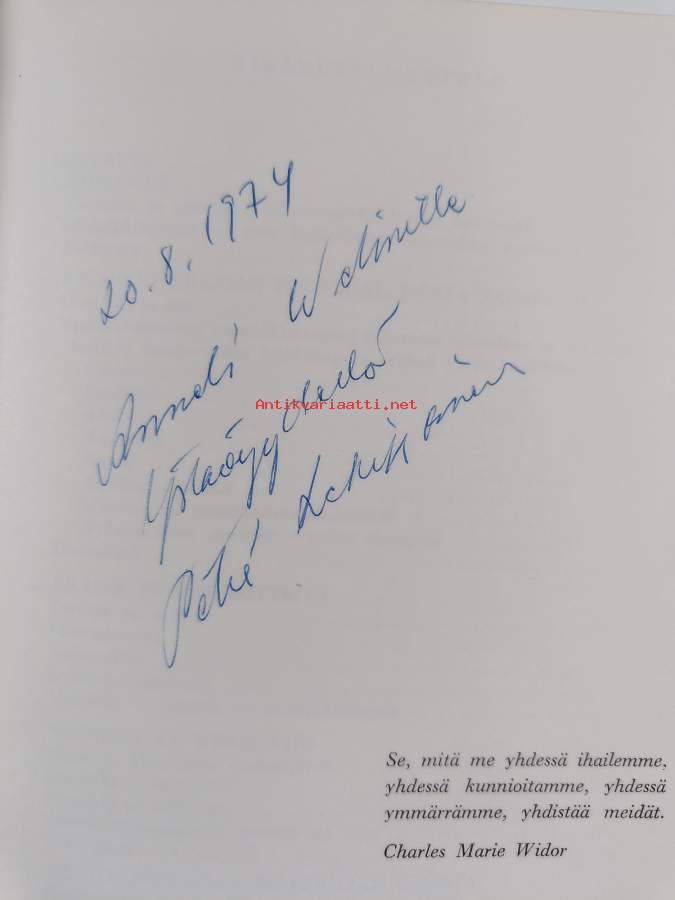 20.8.1974
Anneli Wilmille
Ystävyydellä
Antikvariaatti.net
Se, mitä me yhdessä ihailemme,
yhdessä kunnioitamme, yhdessä
ymmärrämme, yhdistää meidät.
Charles Marie Widor